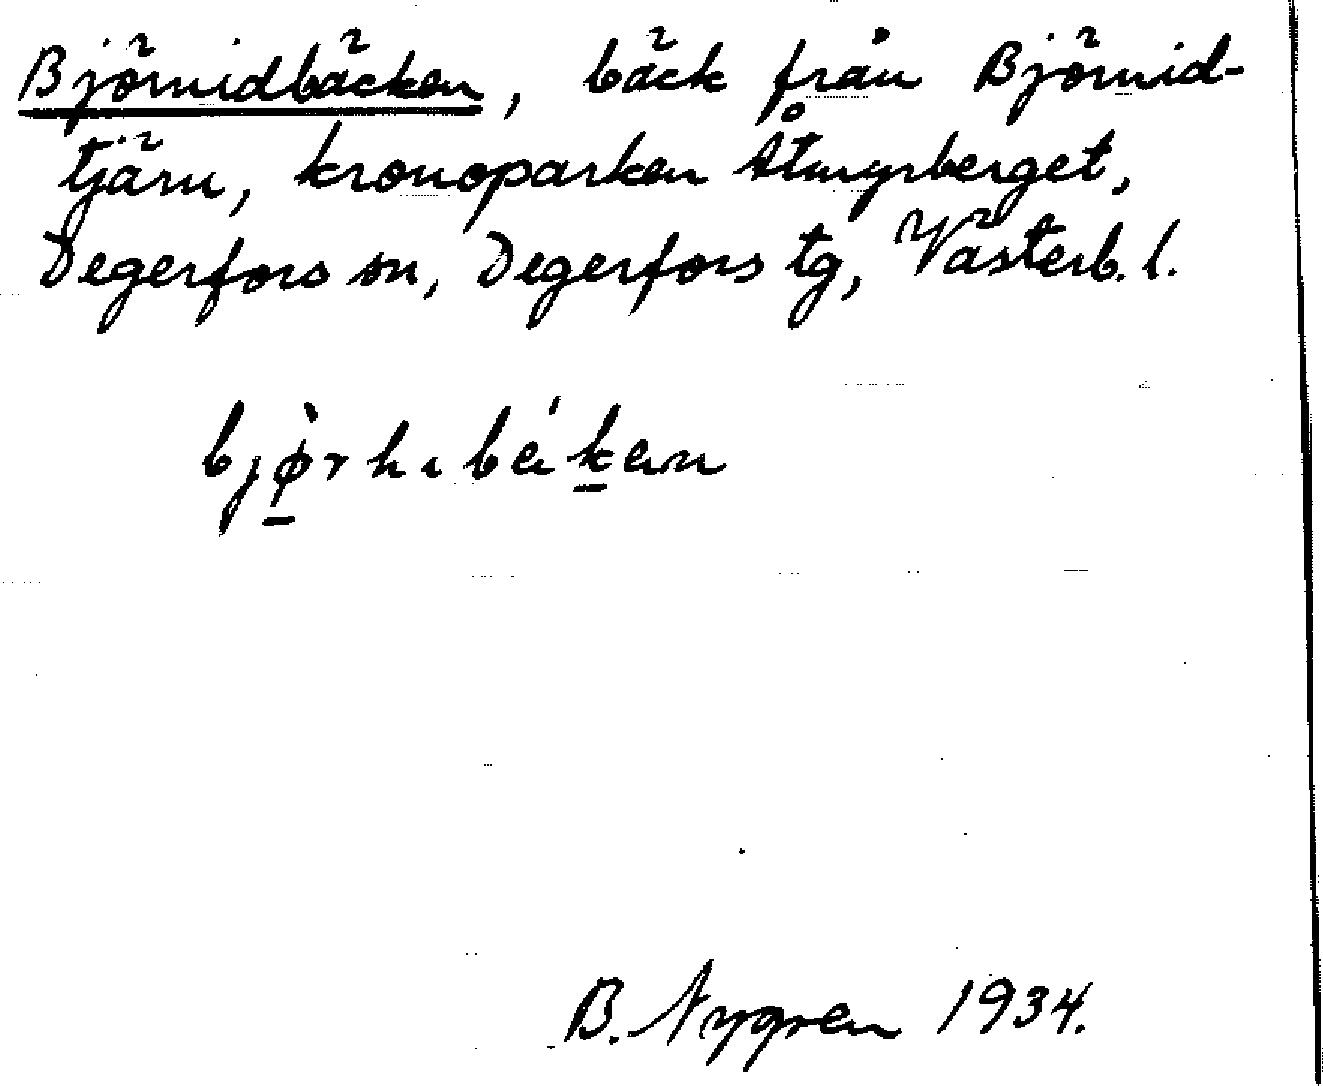 Björnidbäcken, bäck från Björnid-
tjärn, kronoparken Åtmyrberget,
Degerfors sn, Degerfors tg, Västerb. l.
B. Nygren 1934.